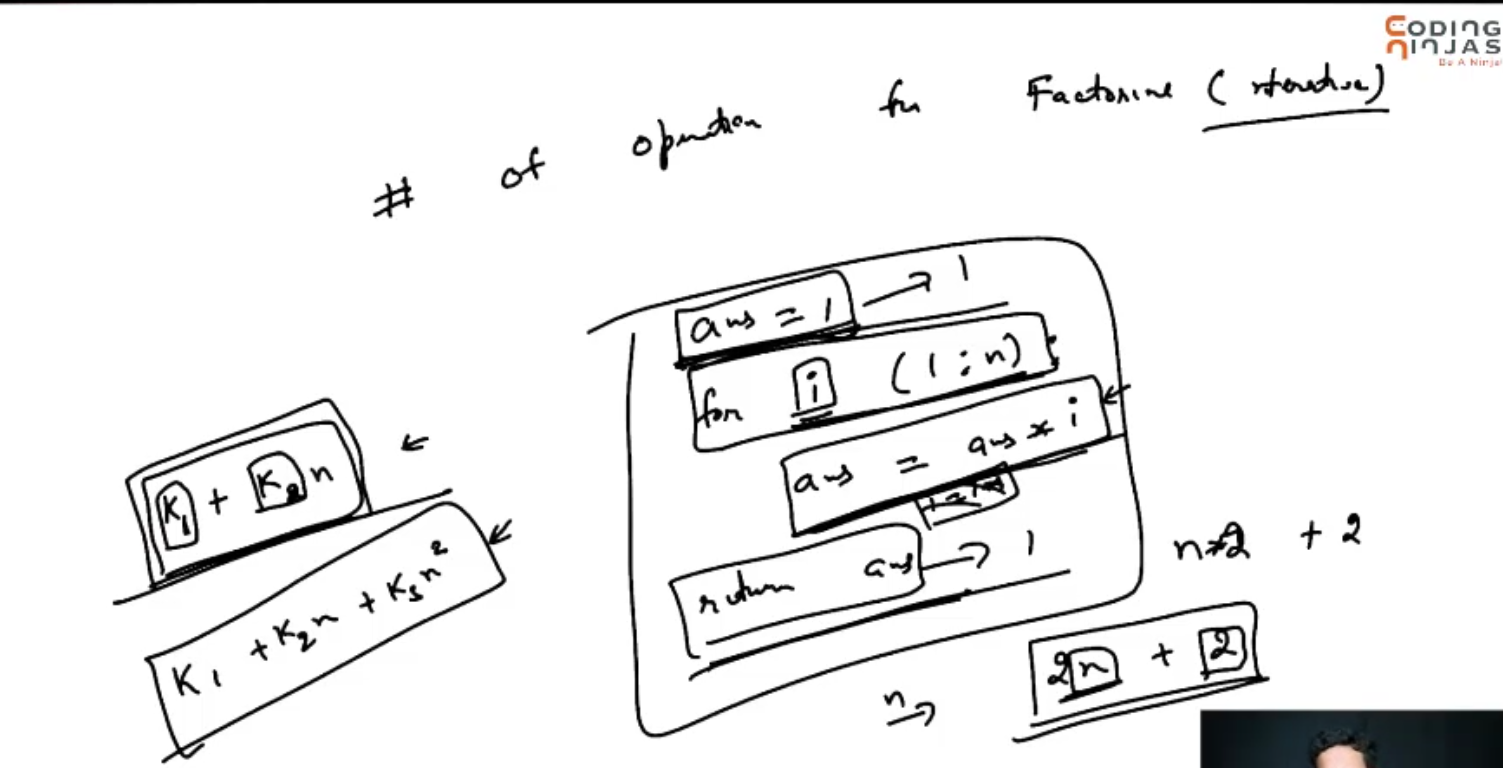 CODING
NINJAS
Be A Ninja!
# of operation for Factorial (iterative)
ans = 1 → 1
for i (1 : n)
ans = ans * i
return ans → 1
K1 + K2 n
K1 + K2n + K3n²
n*2 + 2
n →
2n + 2